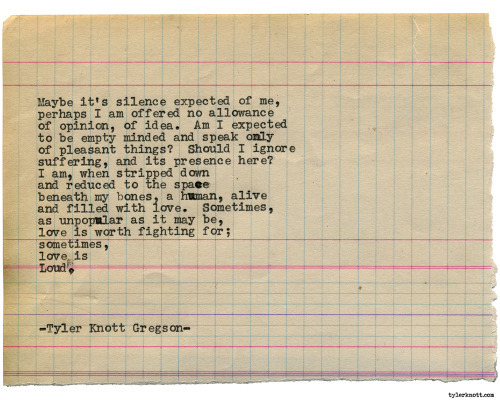 Maybe it's silence expected of me,
perhaps I am offered no allowance
of opinion, of idea.  Am I expected
to be empty minded and speak only
of pleasant things?  Should I ignore
suffering, and its presence here?
I am, when stripped down
and reduced to the space
beneath my bones, a human, alive
and filled with love.  Sometimes,
as unpopular as it may be,
love is worth fighting for;
sometimes,
love is
Loud.
-Tyler Knott Gregson-
tylerknott.com